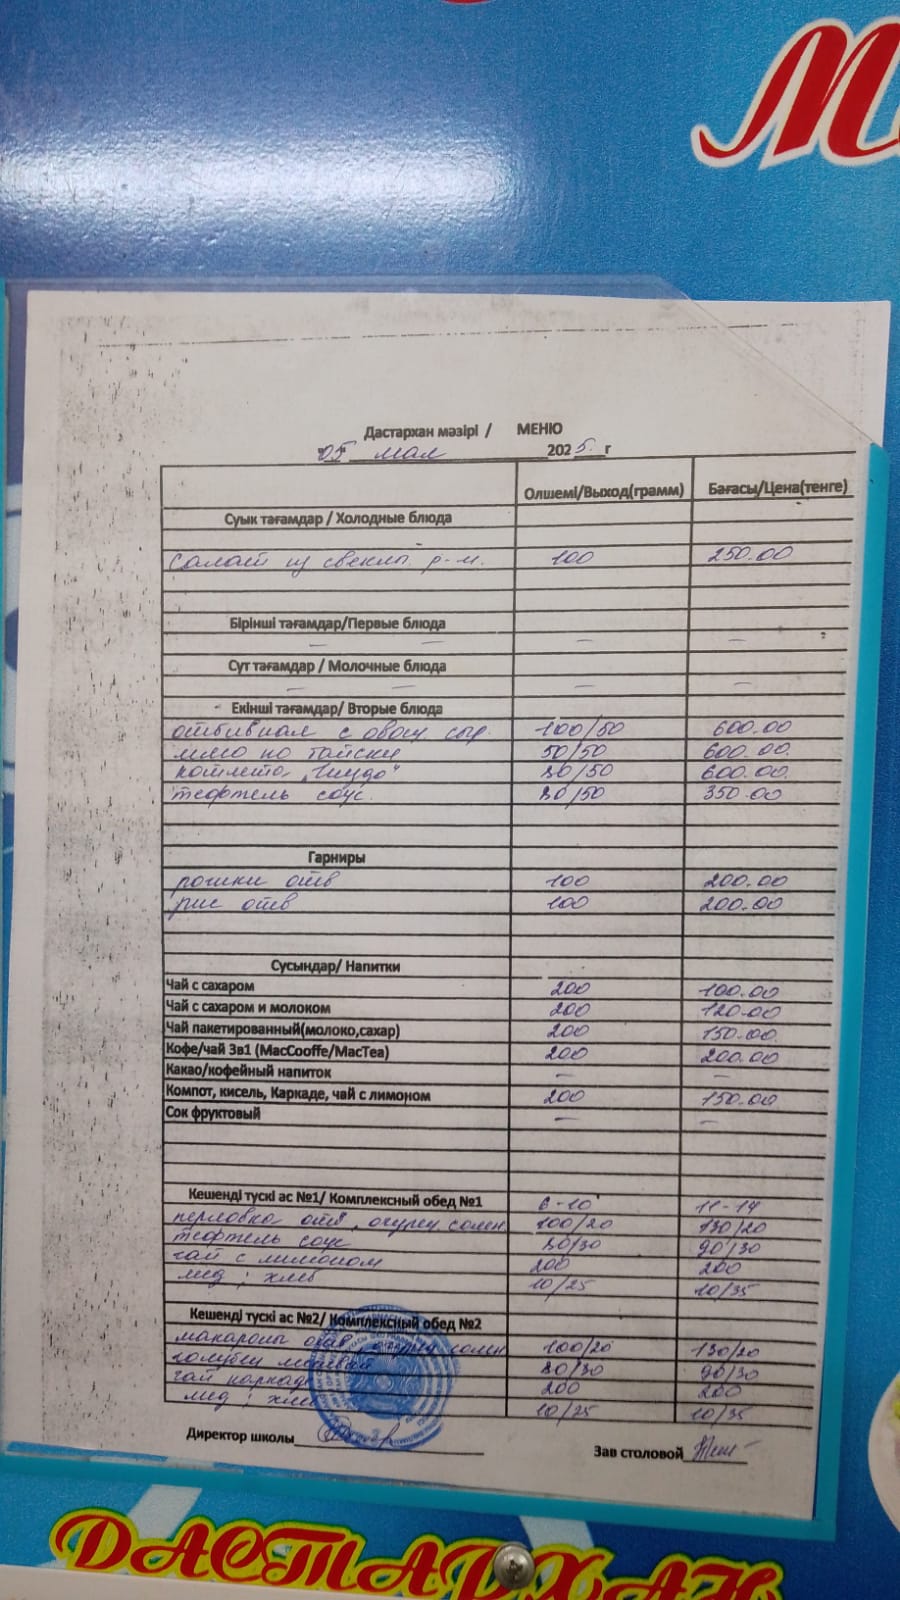 М
Дастархан мәзірі / МЕНЮ
05 мая 2025 г
Олшемі/Выход(грамм) Бағасы/Цена(тенге)
Суык тағамдар / Холодные блюда
Салат из свеклы р-м. 100 250.00
Бірінші тағамдар/Первые блюда
— — — —
Сут тағамдар / Молочные блюда
— — — —
Екінші тағамдар/ Вторые блюда
отбивная с овощ. сыр. 100/50 600.00
мясо по тайски 50/50 600.00.
котлета "Гнездо" 80/50 600.00.
тефтель соус. 80/50 350.00
Гарниры
рожки отв 100 200.00
рис отв 100 200.00
Сусындар/ Напитки
Чай с сахаром 200 100.00
Чай с сахаром и молоком 200 120.00
Чай пакетированный(молоко,сахар) 200 150.00.
Кофе/чай 3в1 (MacCooffe/MacTea) 200 200.00
Какао/кофейный напиток — —
Компот, кисель, Каркаде, чай с лимоном 200 150.00
Сок фруктовый — —
Кешенді тускі ас №1/ Комплексный обед №1 6-10 11-14
перловка отв, огурец солен 100/20 130/20
тефтель соус 80/30 90/30
чай с лимоном 200 200
мед ; хлеб 10/25 10/35
Кешенді тускі ас №2/ Комплексный обед №2
макароны отв, огурец солен 100/20 130/20
голубец 80/30 90/30
чай каркаде 200 200
мед ; хлеб 10/25 10/35
Директор школы Зав столовой
ДАСТАРХАН